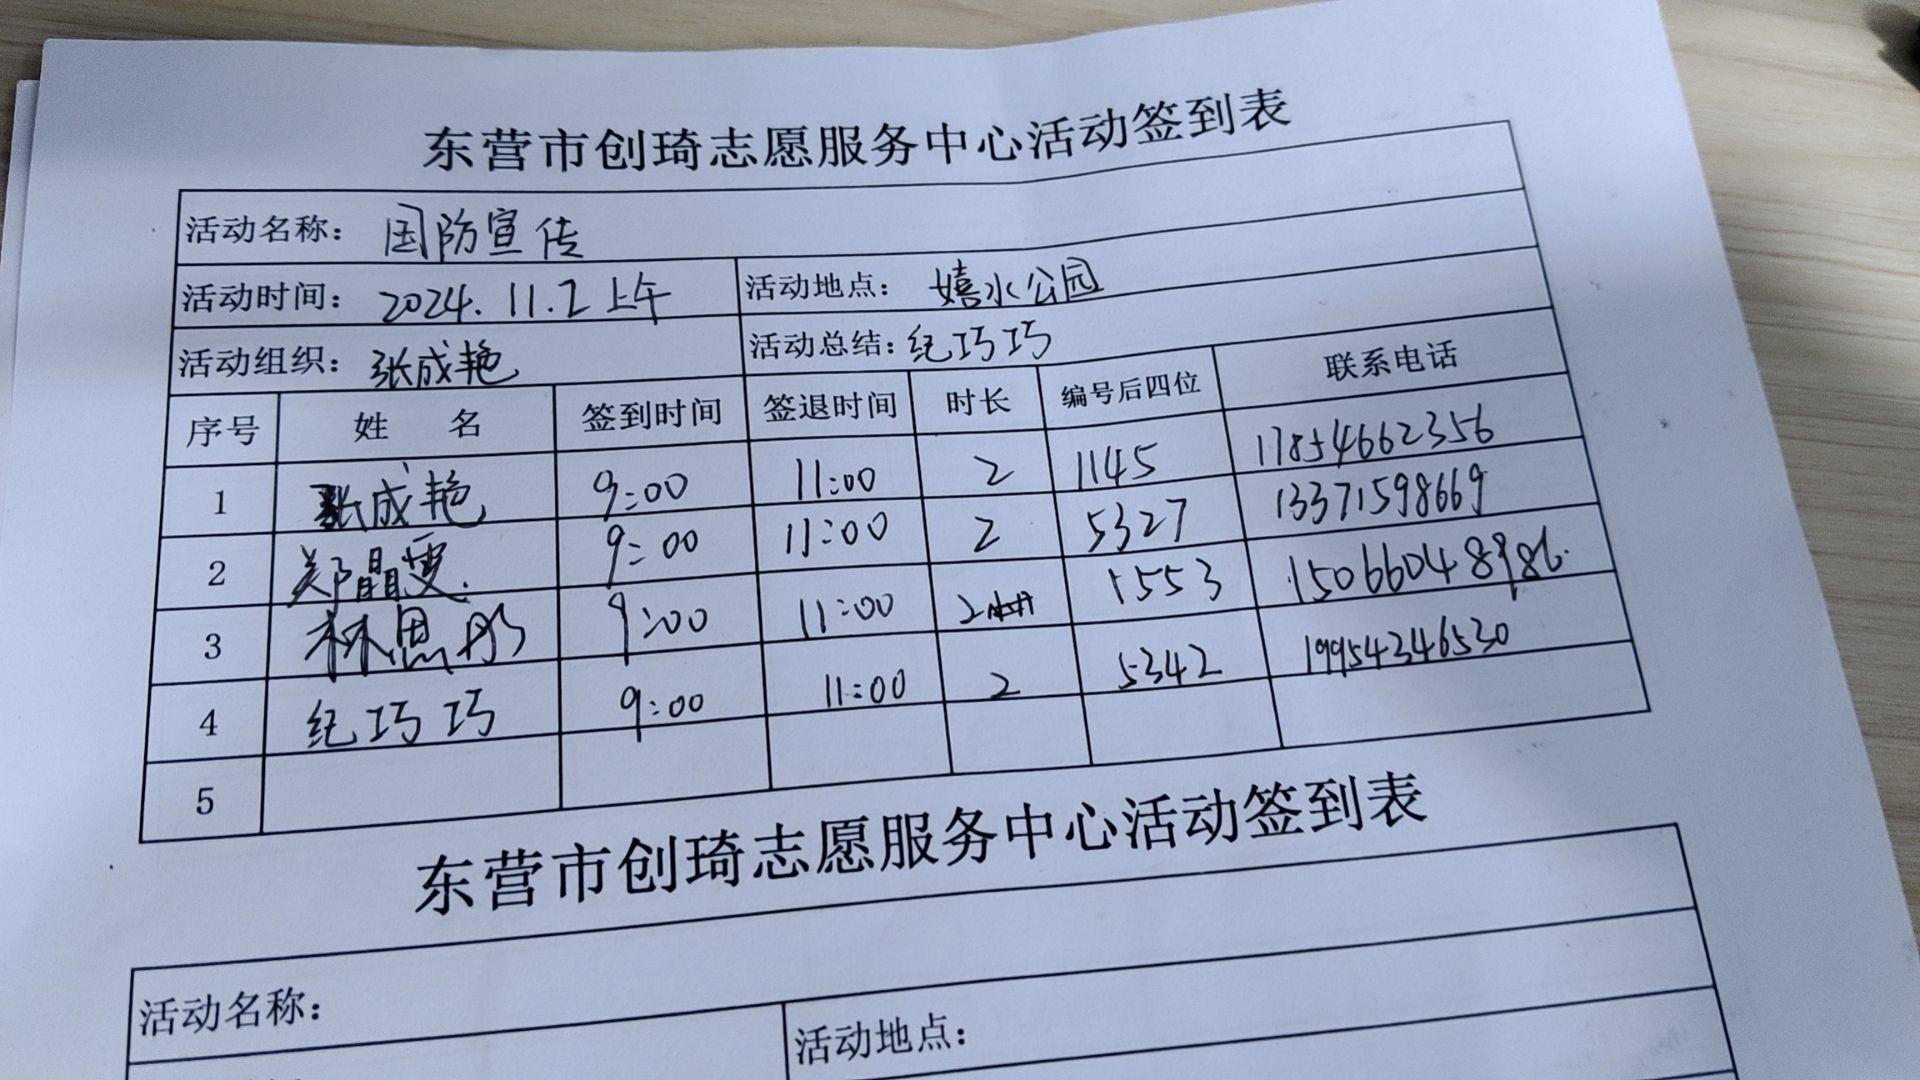 东营市创琦志愿服务中心活动签到表
活动名称： 国防宣传
活动时间： 2024.11.2上午 活动地点： 嬉水公园
活动组织： 张成艳 活动总结： 纪巧巧
序号 姓 名 签到时间 签退时间 时长 编号后四位 联系电话
1 张成艳 9:00 11:00 2 1145 17854662356
2 郑晶雯 9:00 11:00 2 5327 13371598669
3 林思彤 9:00 11:00 2 1553 15066048986
4 纪巧巧 9:00 11:00 2 5342 19954346530
5
东营市创琦志愿服务中心活动签到表
活动名称：
活动地点：